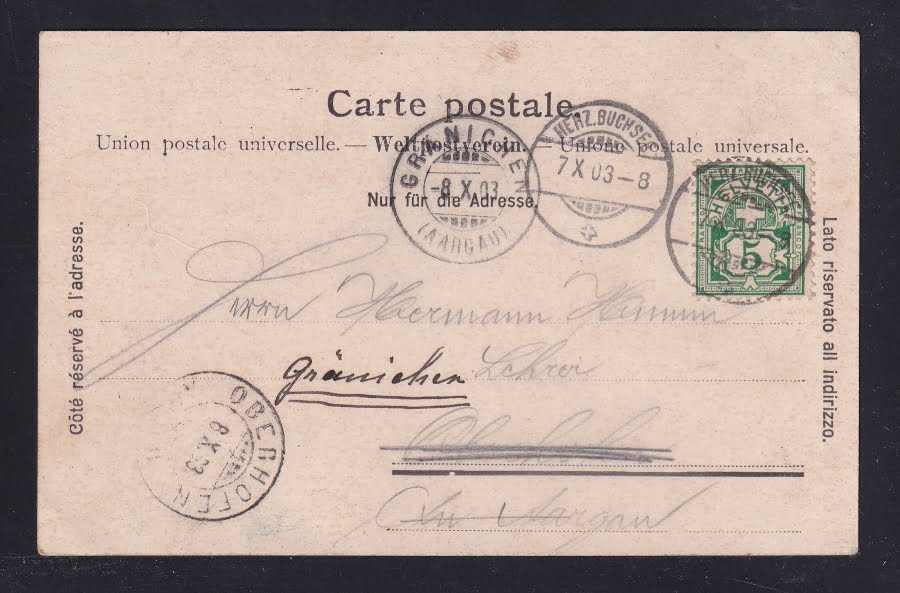 Carte postale
Union postale universelle. — Weltpostverein. — Unione postale universale.
Nur für die Adresse.
Côté réservé à l'adresse.
Lato riservato all indirizzo.
GRÄNICHEN
-8.X.03
(AARGAU)
HERZ.BUCHSEE
7 X 03-8
HELVETIA
FRANCO
5
Herrn Hermann
Lehrer
Gränichen
in Aargau
OBERHOFEN
8 X 03